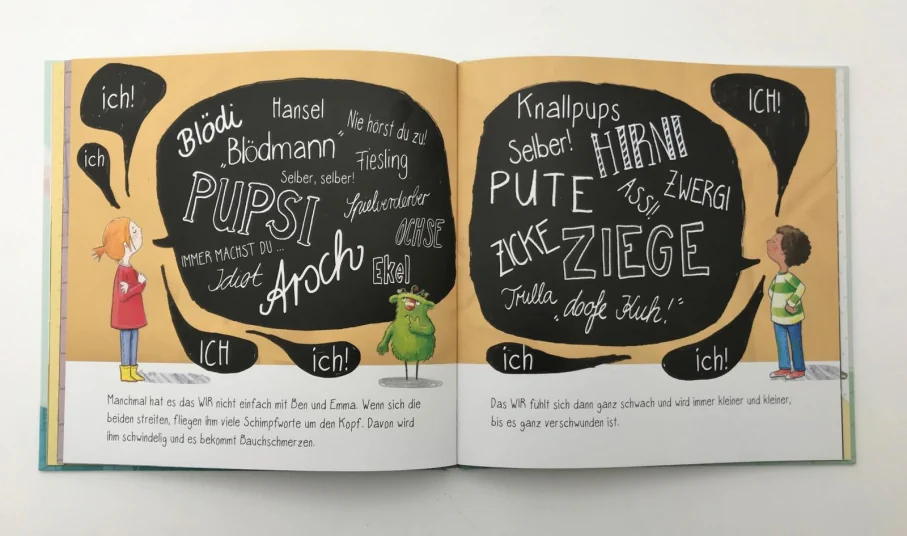 ich!
ich
Blödi
Hansel
Nie hörst du zu!
„Blödmann“
Fiesling
Selber, selber!
PUPSI
Spielverderber
OCHSE
IMMER MACHST DU ...
Idiot
Arsch
Ekel
ICH
ich!
Manchmal hat es das WIR nicht einfach mit Ben und Emma. Wenn sich die
beiden streiten, fliegen ihm viele Schimpfworte um den Kopf. Davon wird
ihm schwindelig und es bekommt Bauchschmerzen.
ICH!
Knallpups
Selber!
HIRNI
PUTE
ASSI!
ZWERGI
ZICKE
ZIEGE
Trulla
„doofe Kuh!“
ich
ich!
Das WIR fühlt sich dann ganz schwach und wird immer kleiner und kleiner,
bis es ganz verschwunden ist.